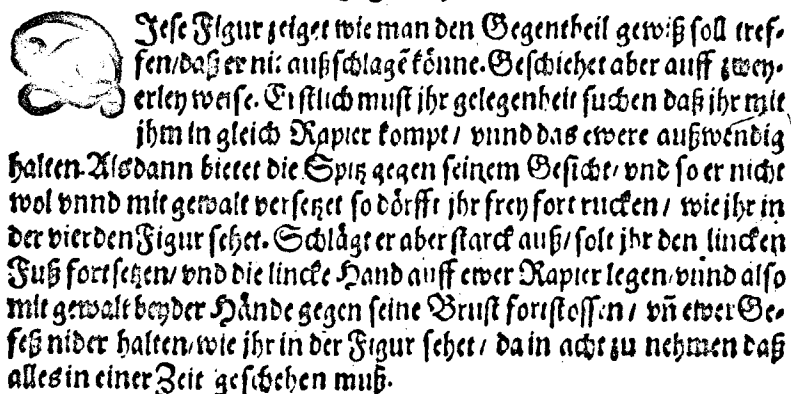 DIese Figur zeiget wie man den Gegentheil gewiß soll tref-
fen/daß er nit außschlagē könne. Geschiehet aber auff zwey-
erley weise. Erstlich must jhr gelegenheit suchen daß jhr mit
jhm in gleich Rapier kompt / vnnd das ewere außwendig
halten. Alsdann bietet die Spitz gegen seinem Gesicht/ vnd so er nicht
wol vnnd mit gewalt versetzet so dörfft jhr frey fort rucken / wie jhr in
der vierden Figur sehet. Schlägt er aber starck auß/ solt jhr den lincken
Fuß fortsetzen/ vnd die lincke Hand auff ewer Rapier legen/ vnnd also
mit gewalt beyder Hände gegen seine Brust fortstossen / vñ ewer Ge-
feß nider halten/wie jhr in der Figur sehet / da in acht zu nehmen daß
alles in einer Zeit geschehen muß.